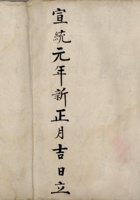 宣統元年新正月吉日立